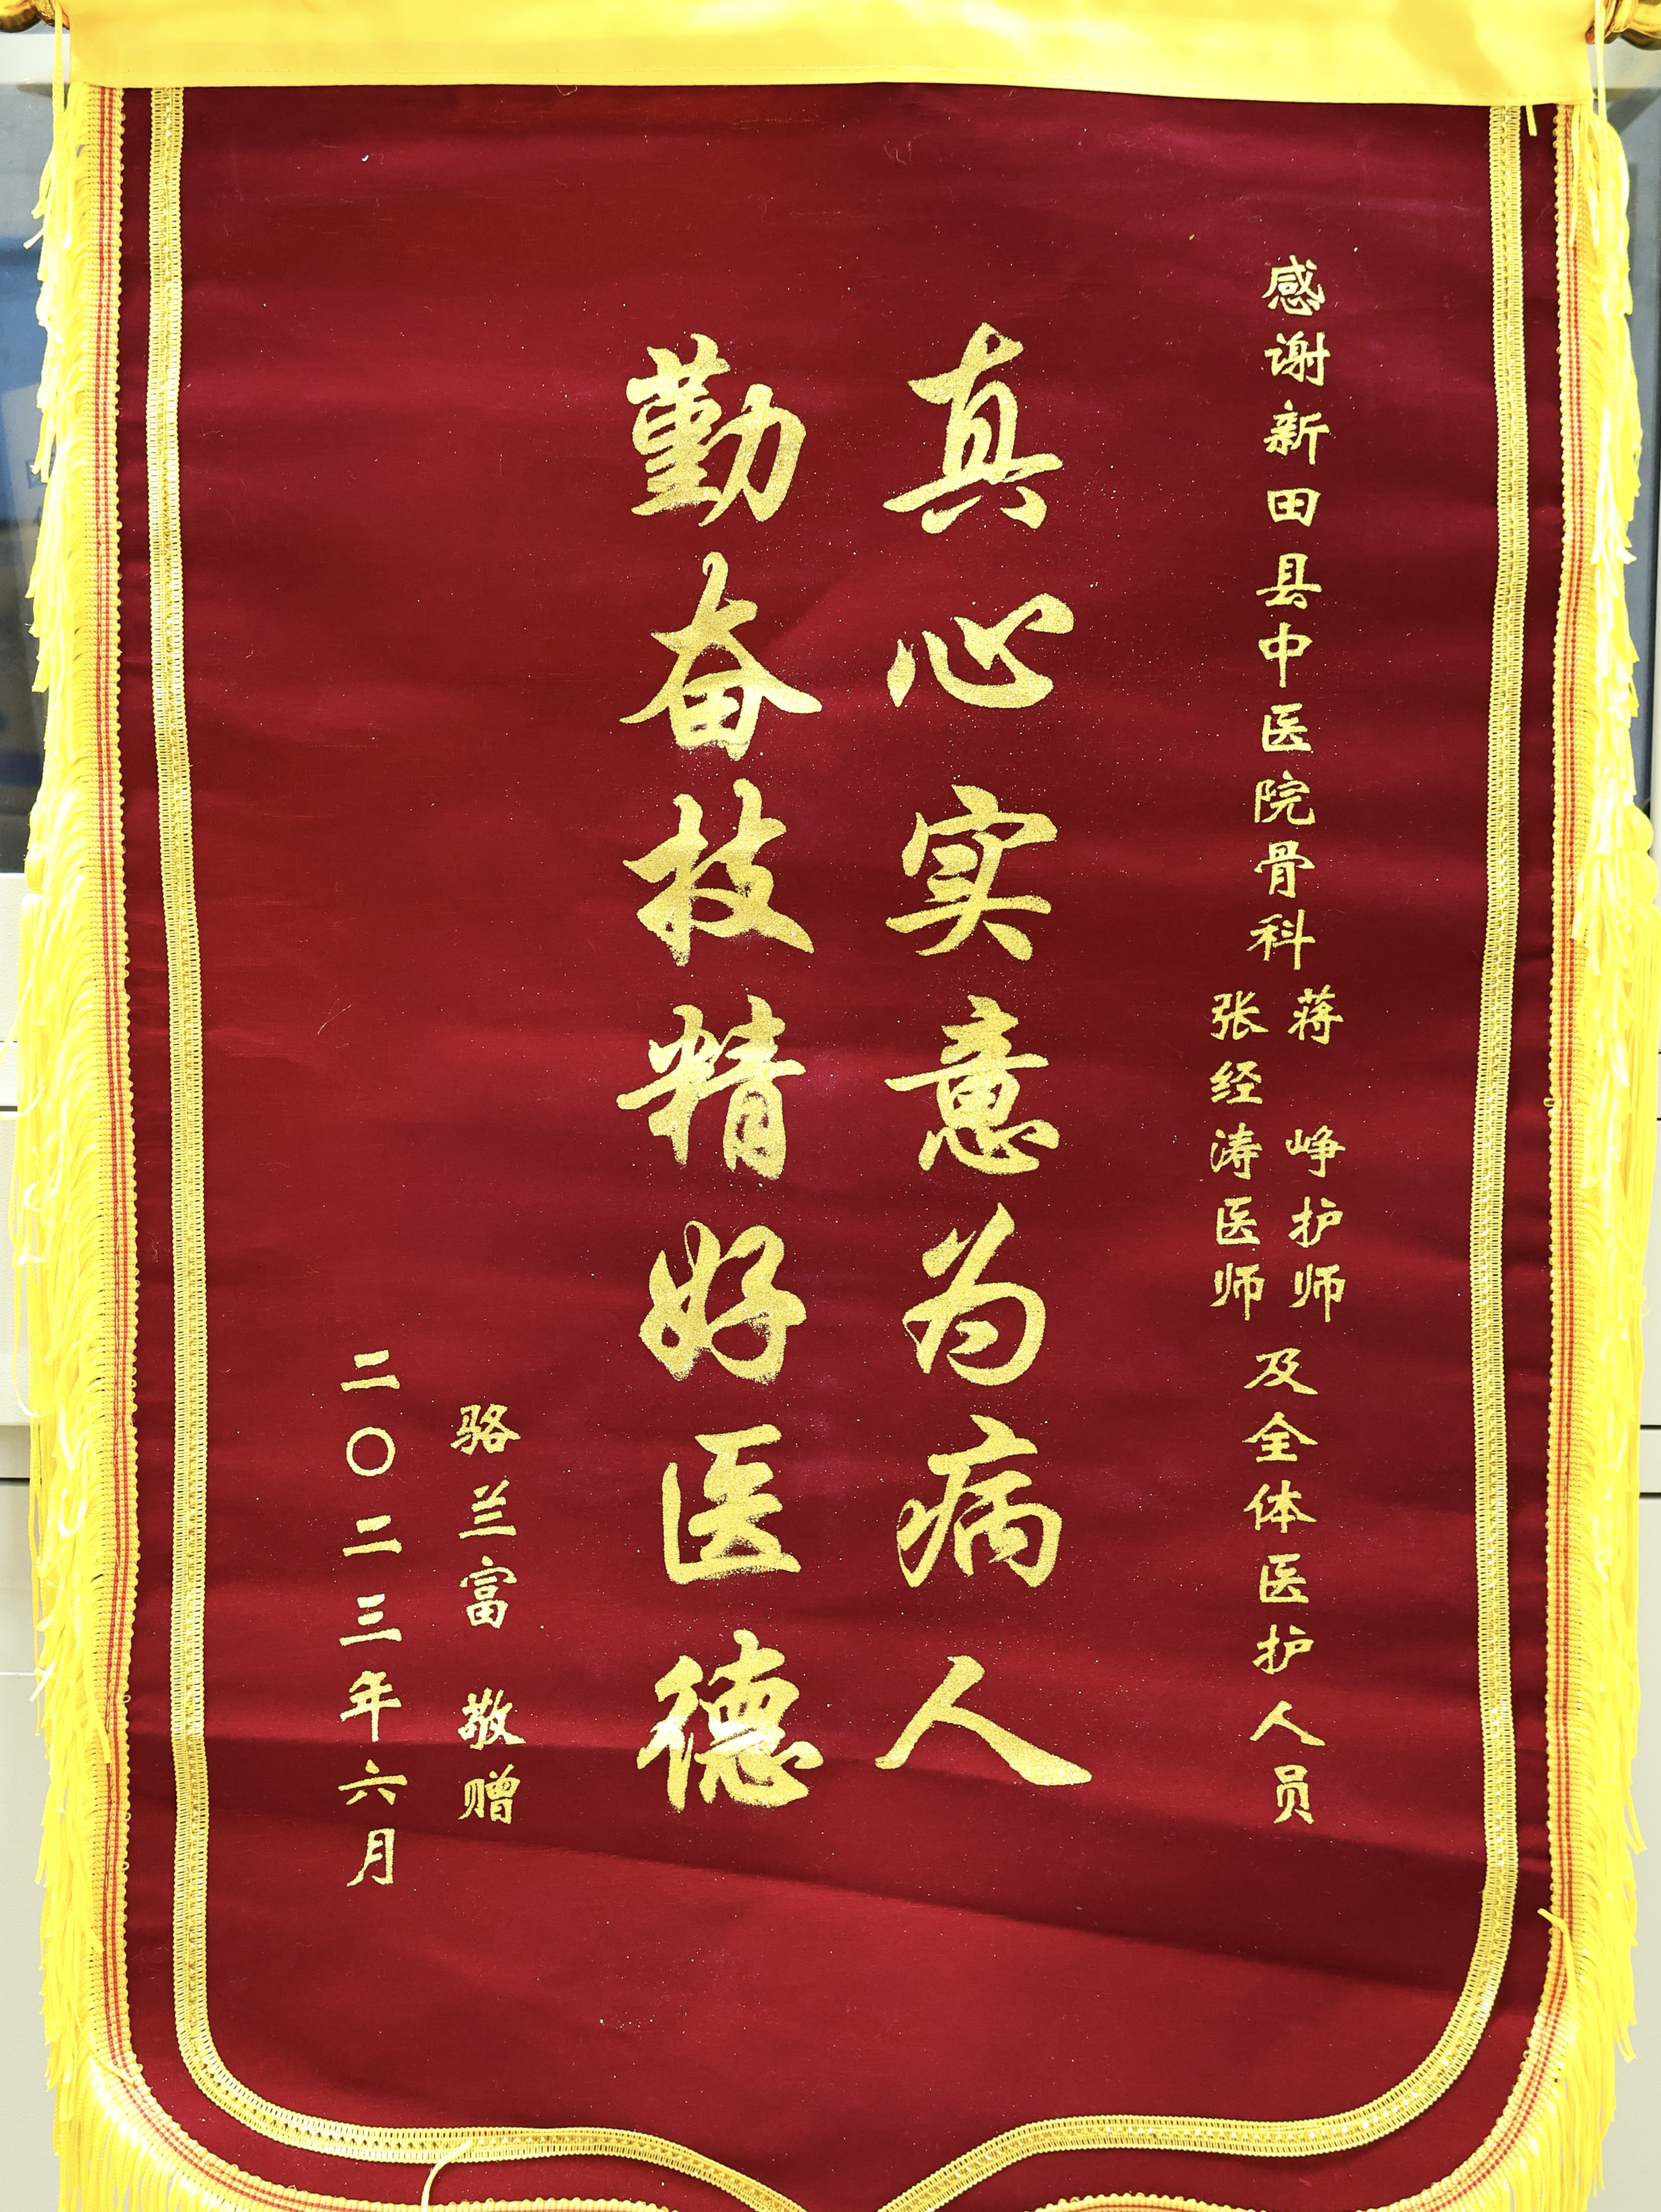 感谢新田县中医院骨科
蒋峥护师
张经涛医师
及全体医护人员
真心实意为病人
勤奋技精好医德
骆兰富 敬赠
二〇二三年六月